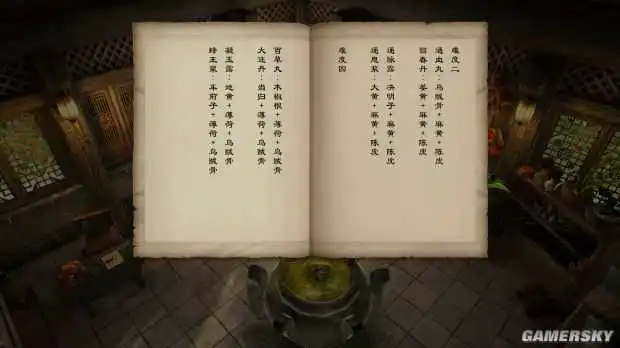 难度二
通血丸:乌贼骨+麻黄+陈皮
春丹:姜黄+麻黄+陈皮
通脉露:决明子+麻黄+陈皮
通思浆:大黄+麻黄+陈皮
难度四
百草丸:木根+薄荷+乌贼骨
大还丹:当归+薄荷+乌贼骨
凝玉露:地黄+薄荷+乌贼骨
蜂王浆:车前子+薄荷+乌贼骨
GAMERSKY